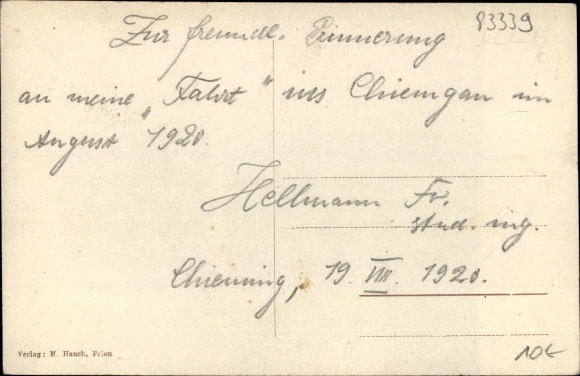 83339
Zur freundl. Erinnerung
an meine „Fahrt" ins Chiemgau im
August 1920.
Hellmann Fr.
stud. ing.
Chieming, 19. VIII. 1920.
Verlag: M. Hauch, Prien
10€